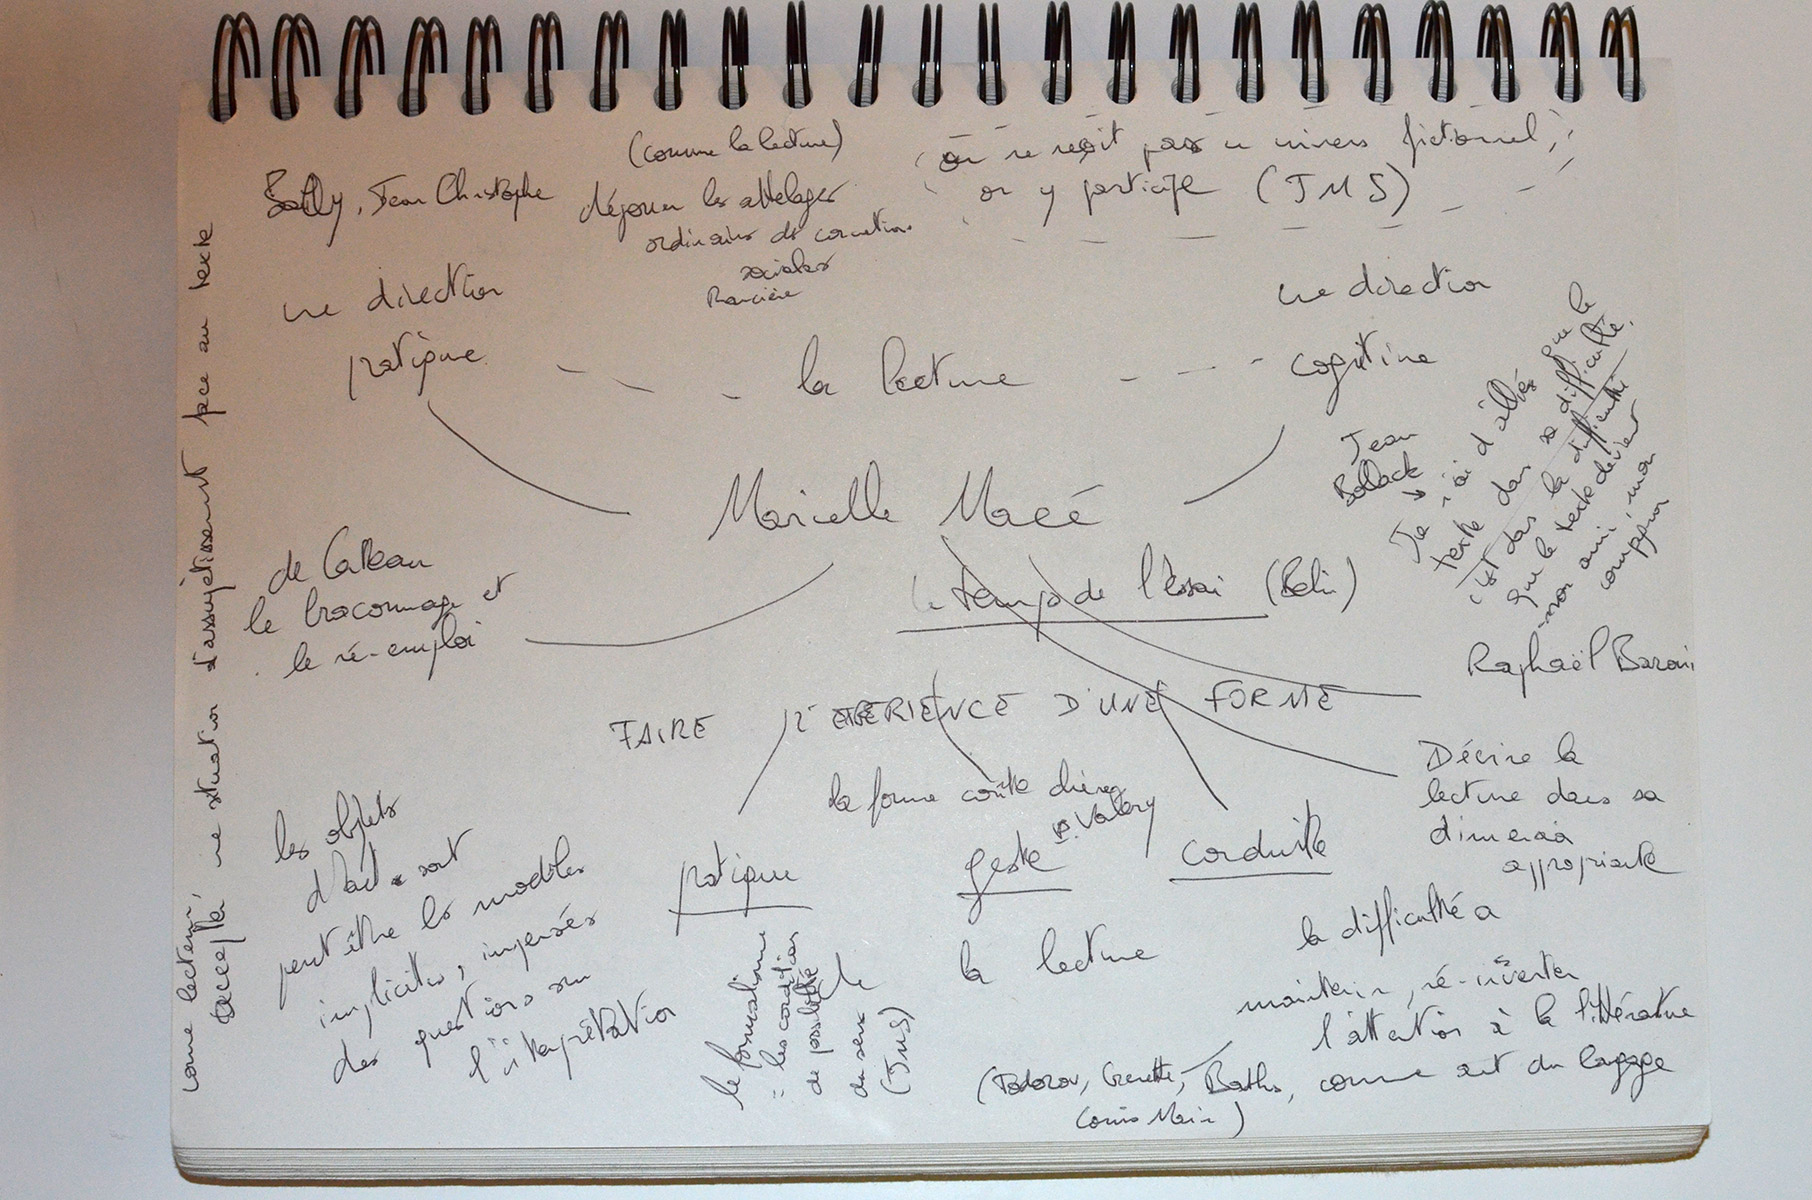 (comme la lecture)
on ne reçoit pas un univers fictionnel,
on y participe (JMS)
Bailly, Jean Christophe
déjouer les attelages
ordinaires de connections
sociales
Rancière
une direction
pratique
la lecture
une direction
cognitive
Marielle Macé
Le temps de l'essai (Belin)
Jean
Bollack
Je n'ai d'accès que le
texte dans sa difficulté.
c'est dans la difficulté
que le texte devient
mon ami, mon
compagnon
de Certeau
le braconnage et
le ré-emploi
Raphaël Baroni
FAIRE L'EXPERIENCE D'UNE FORME
Décrire la
lecture dans sa
dimension
appropriante
la forme coûte cher
P. Valéry
pratique
geste
conduite
la lecture
les objets
d'art sont
peut être les modèles
implicites, impensés
des questions sur
l'interprétation
le formalisme
= les conditions
de possibilité
du sens
(JMS)
la difficulté a
maintenir, ré-inventer
l'attention à la littérature
comme art du langage
(Todorov, Genette, Barthes,
Louis Marin)
comme lecteur,
accepter une situation d'assujetissement face au texte